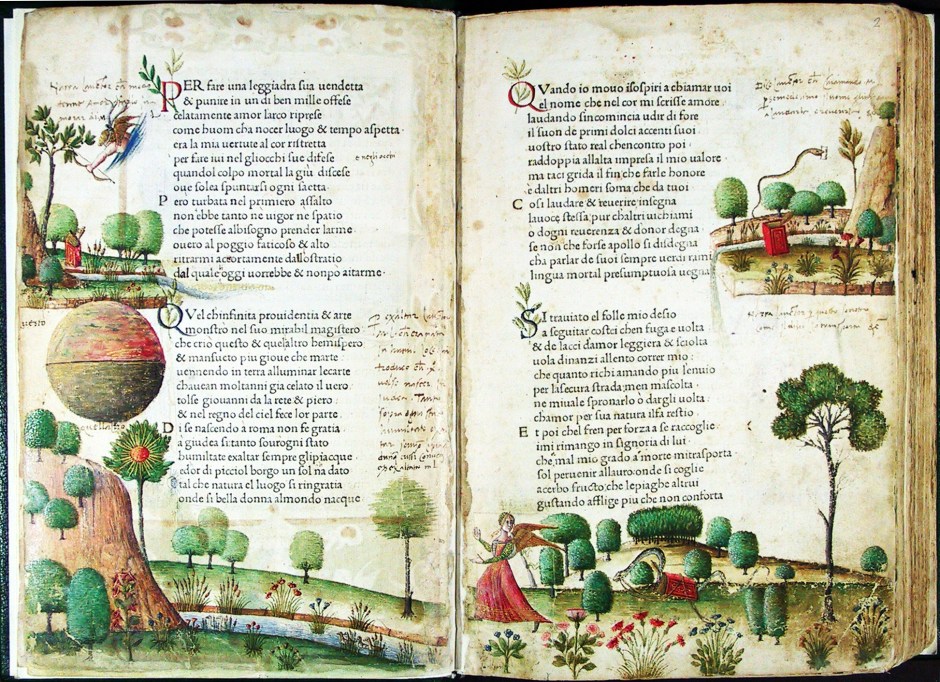 PER fare una leggiadra sua uendetta
& punire in un di ben mille offese
celatamente amor larco riprese
come huom cha nocer luogo & tempo aspetta.
era la mia uertute al cor ristretta
per fare iui nel gliocchi sue difese
quandol colpo mortal la giu discese
oue solea spuntarsi ogni saetta.
Pero turbata nel primiero assalto
non ebbe tanto ne uigor ne spatio
che potesse albisogno prender larme.
ouero al poggio faticoso & alto
ritrarmi accortamente dallostratio
dal quale oggi uorrebbe & nonpo aitarme.
QVel chinfinita prouidentia & arte
monstro nel suo mirabil magistero
che crio questo & quelaltro hemispero
& mansueto piu gioue che marte.
uennendo in terra alluminar lecarte
chauean moltanni gia celato il uero.
tolse giouanni da la rete & piero.
& nel regno del ciel fece lor parte.
Di se nascendo a roma non fe gratia
a giudea si tanto sourogni stato
humiltate exaltar sempre glipiacque
edor di picciol borgo un sol na dato
tal che natura el luogo si ringratia
onde si bella donna almondo nacque
2
QVando io mouo isospiri a chiamar uoi
el nome che nel cor mi scrisse amore
laudando sincomincia udir di fore
il suon de primi dolci accenti suoi
uostro stato real chencontro poi
raddoppia allalta impresa il mio ualore
ma taci grida il fin che farle honore
è daltri homeri soma che da tuoi
Cosi laudare & reuerire insegna
lauoce stessa pur chaltri uichiami
o dogni reuerenza & donor degna
se non che forse apollo si disdegna
cha parlar de suoi sempre uerdi rami
lingua mortal presumptuosa uegna
SI trauiato el folle mio desio
a seguitar costei chen fuga e uolta
& de lacci damor leggiera & sciolta
uola dinanzi allento correr mio
che quanto richi amando piu lenuio
per lasecura strada men mascolta
ne miuale spronarlo o dargli uolta
chamor per sua natura ilfa restio
Et poi chel fren per forza a se raccoglie
imi rimango in signoria di lui
che mal mio grado a morte mitrasporta
sol per uenir allauro onde si coglie
acerbo fructo che lepiaghe altrui
gustando afflige piu che non conforta